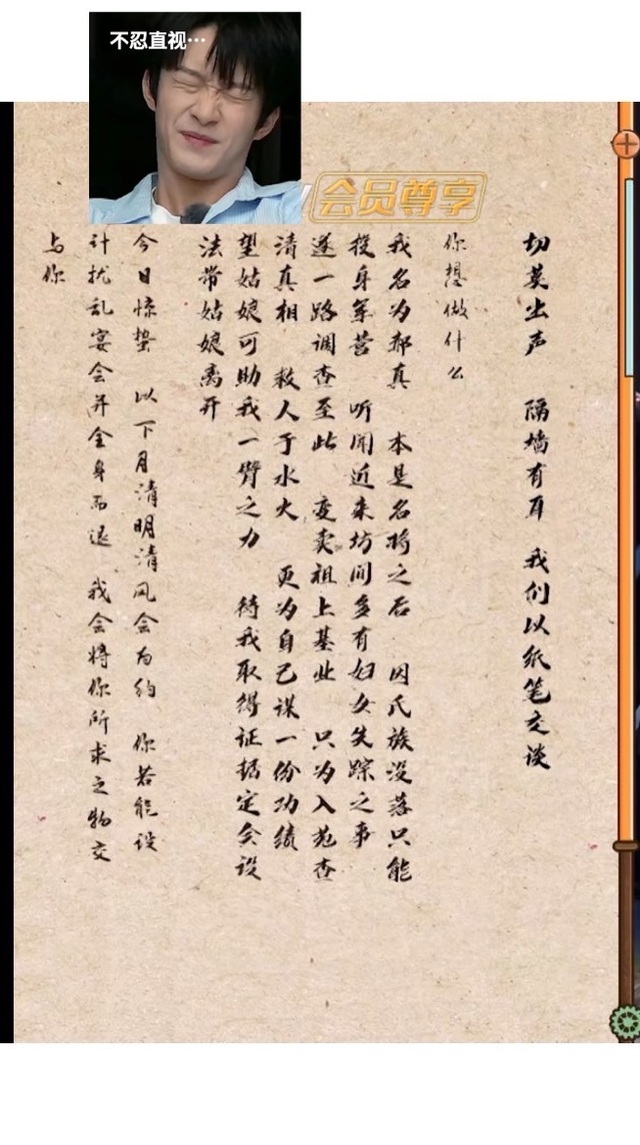 不忍直视…
会员尊享
切莫出声 隔墙有耳 我们以纸笔交谈
你想做什么
我名为郝真 本是名将之后 因氏族没落只能
投身军营 听闻近来坊间多有妇女失踪之事
遂一路调查至此 变卖祖上基业 只为入苑查
清真相 救人于水火 更为自己谋一份功绩
望姑娘可助我一臂之力 待我取得证据定会设
法带姑娘离开
今日惊蛰 以下月清明清风会为约 你若能设
计扰乱宴会并全身而退 我会将你所求之物交
与你